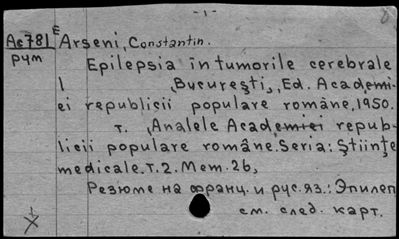 -1-
Ac781 E Arseni, Constantin.
рум
Epilepsia în tumorile cerebrale
1 ,București,, Ed. Academi-
ei republicii populare române, 1950.
т. ,Analele Academiei repub-
licii populare române. Seria: Științe
medicale. T. 2. Mem. 26,
Резюме на франц. и рус. яз.: Эпилеп
см. след. карт.
X